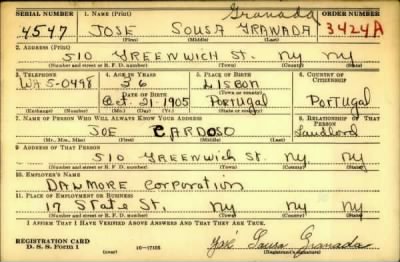 Granada
SERIAL NUMBER 1. NAME (Print) ORDER NUMBER
4547 JOSE SOUSA GRANADA 3424A
(First) (Middle) (Last)
2. ADDRESS (Print)
510 GREENWICH ST. NY NY
(Number and street or R. F. D. number) (Town) (County) (State)
3. TELEPHONE 4. AGE IN YEARS 5. PLACE OF BIRTH 6. COUNTRY OF CITIZENSHIP
WA 5-0498 36 LISBON
DATE OF BIRTH (Town or county)
Oct. 21 1905 Portugal Portugal
(Exchange) (Number) (Mo.) (Day) (Yr.) (State or country)
7. NAME OF PERSON WHO WILL ALWAYS KNOW YOUR ADDRESS 8. RELATIONSHIP OF THAT PERSON
JOE CARDOSO Landlord
(Mr., Mrs., Miss) (First) (Middle) (Last)
9. ADDRESS OF THAT PERSON
510 GREENWich ST. NY. NY
(Number and street or R. F. D. number) (Town) (County) (State)
10. EMPLOYER'S NAME
DANMORE Corporation
11. PLACE OF EMPLOYMENT OR BUSINESS
17 State St. NY NY
(Number and street or R. F. D. number) (Town) (County) (State)
I AFFIRM THAT I HAVE VERIFIED ABOVE ANSWERS AND THAT THEY ARE TRUE.
REGISTRATION CARD
D. S. S. Form 1 16-17105 José Sousa Granada
(Registrant's signature)